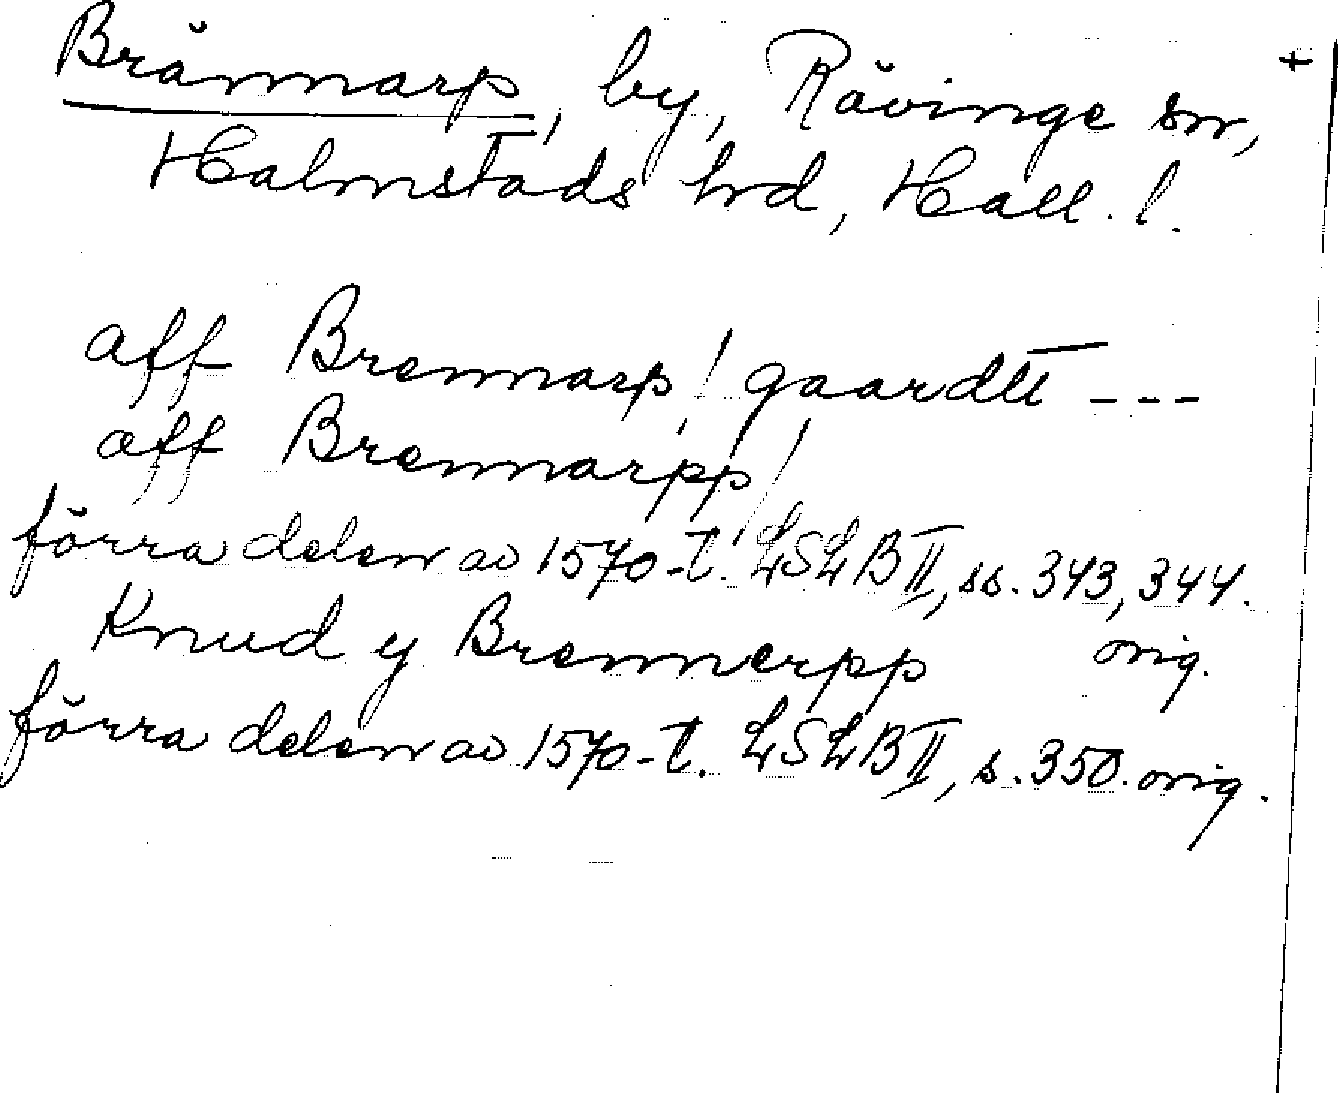 Brännarp, by, Rävinge sn, +
Halmstads hrd, Hall. l.
aff Brennarp / gaardtt ---
aff Brennarpp /
förra delen av 1570-t. LSLB II, ss. 343, 344.
orig.
Knud y Brennerpp
förra delen av 1570-t. LSLB II, s. 350. orig.